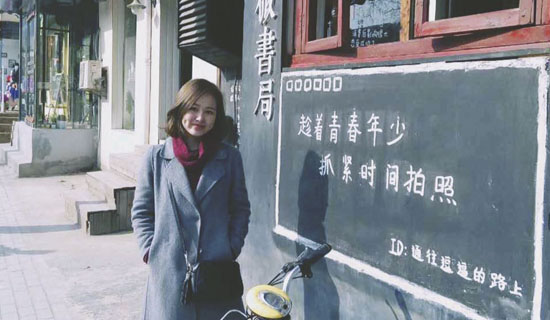 板書局
趁着青春年少
抓紧时间拍照
ID:通往逗逼的路上